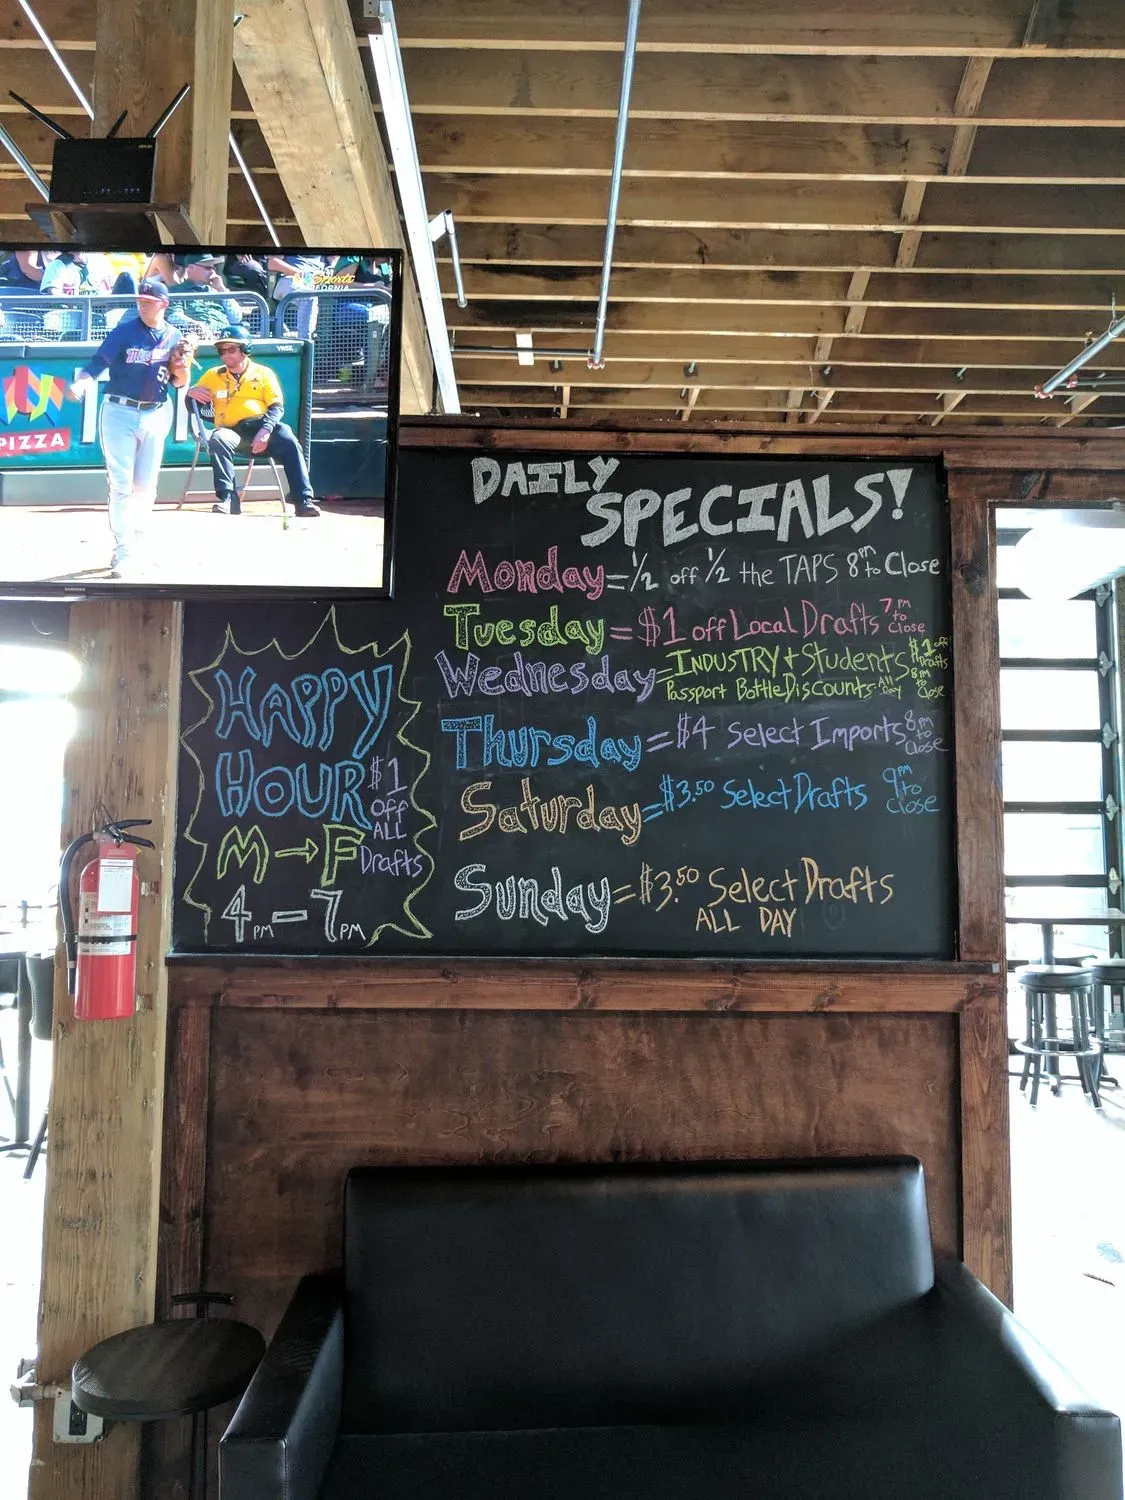 DAILY
SPECIALS!
Monday = 1/2 off 1/2 the TAPS 8PM to Close
Tuesday = $1 off Local Drafts 7PM to Close
Wednesday = INDUSTRY + Students $1 off Drafts 8PM to Close
Passport Bottle Discounts - All Day
Thursday = $4 Select Imports 8PM to Close
Saturday = $3.50 Select Drafts 9PM to Close
Sunday = $3.50 Select Drafts
ALL DAY
HAPPY
HOUR
$1
off
ALL
Drafts
M → F
4PM - 7PM
PIZZA
SAMSUNG